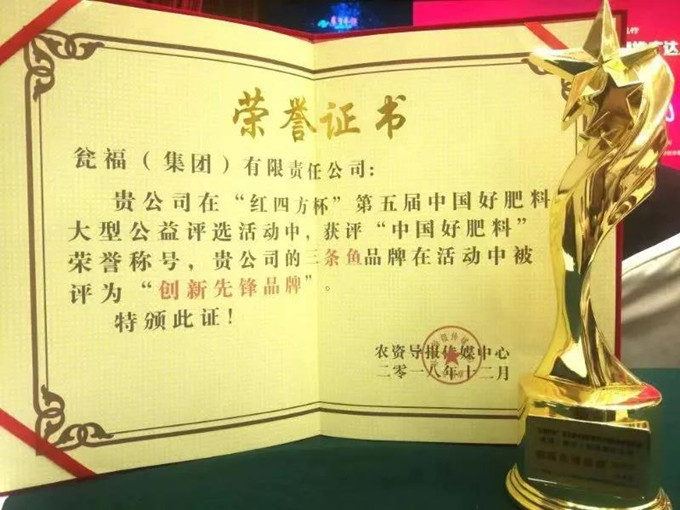 荣誉证书
瓮福（集团）有限责任公司：
贵公司在“红四方杯”第五届中国好肥料
大型公益评选活动中，获评“中国好肥料”
荣誉称号，贵公司的三条鱼品牌在活动中被
评为“创新先锋品牌”。
特颁此证！
农资导报传媒中心
二零一八年十二月